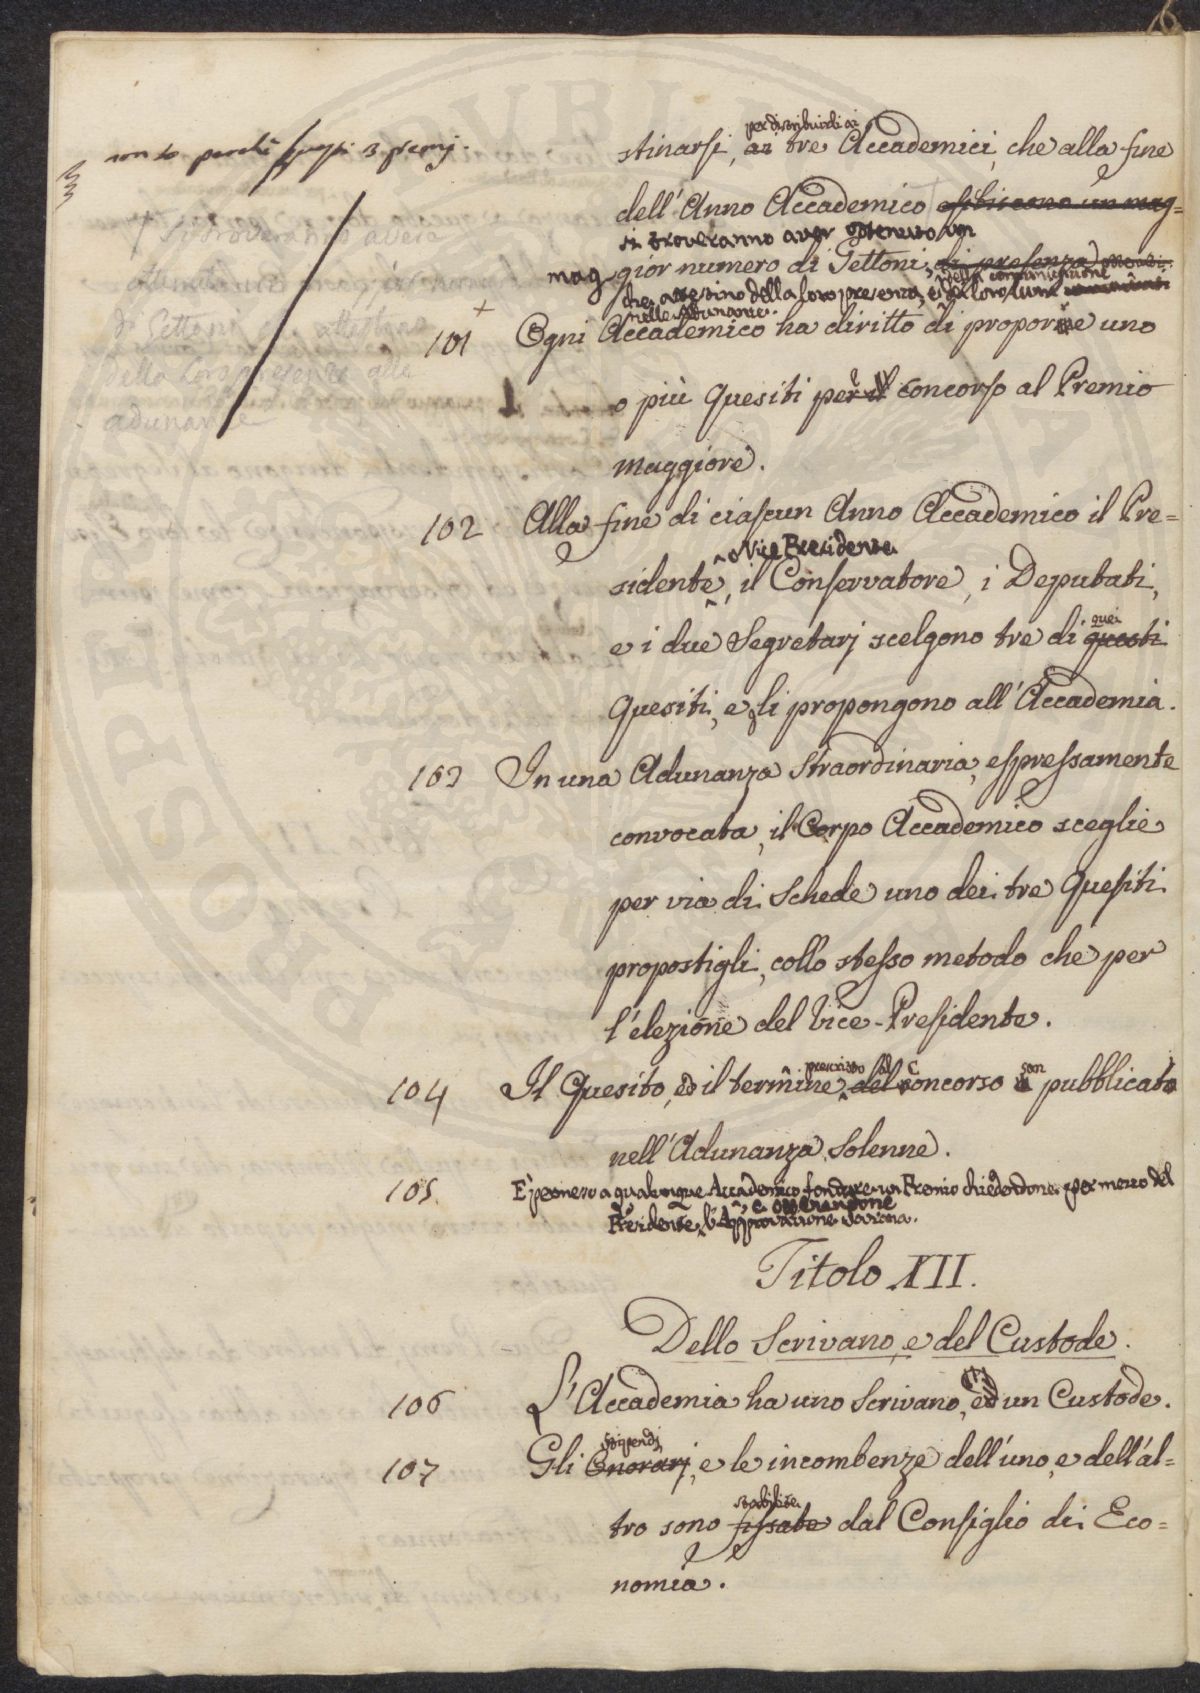 16
non so perché questi 3 premj.
per distribuirsi ai
stinarsi, ai tre Accademici, che alla fine
dell'Anno Accademico esibiscono un mag=
si troveranno aver ottenuto un
mag gior numero di Gettoni di presenza
che attestino della loro presenza,
nelle Adunanze.
+ Si troveranno avere
ottenuto un
di Gettoni attestano
della loro presenza alle
adunanze
101 Ogni Accademico ha diritto di proporre uno
o più Quesiti per il concorso al Premio
maggiore.
102 Alla fine di ciascun Anno Accademico il Pre=
o Vice Presidente
sidente, il Conservatore, i Deputati,
e i due Segretarj scelgono tre di questi
quei
Quesiti, e li propongono all'Accademia.
103 In una Adunanza Straordinaria, espressamente
convocata, il Corpo Accademico sceglie
per via di Schede uno dei tre Quesiti
propostigli, collo stesso metodo che per
l'elezione del Vice-Presidente.
prescritto al son
104 Il Quesito, ed il termine del concorso è pubblicato
nell'Adunanza Solenne.
105. È permesso a qualunque Accademico fondare un Premio chiedendone per mezzo del
e ottenendone
Presidente l'Approvazione Sovrana.
Titolo XII.
Dello Scrivano, e del Custode.
106 L'Accademia ha uno Scrivano, ed un Custode.
stipendj
107 Gli Onorarj, e le incombenze dell'uno, e dell'al=
stabilite
tro sono fissate dal Consiglio di Eco=
nomia.